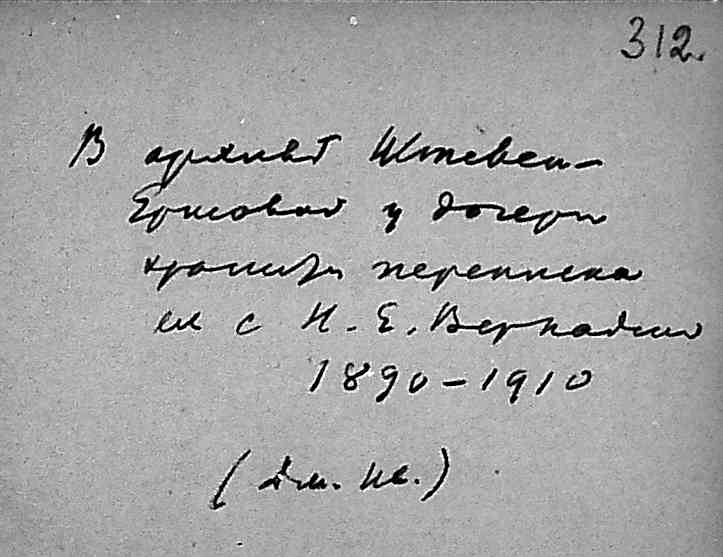 312.
В архивѣ Штевен-
Ершовой у дочери
хранится переписка
ея с Н. Е. Вернадской
1890–1910
(Дм. Ив.)